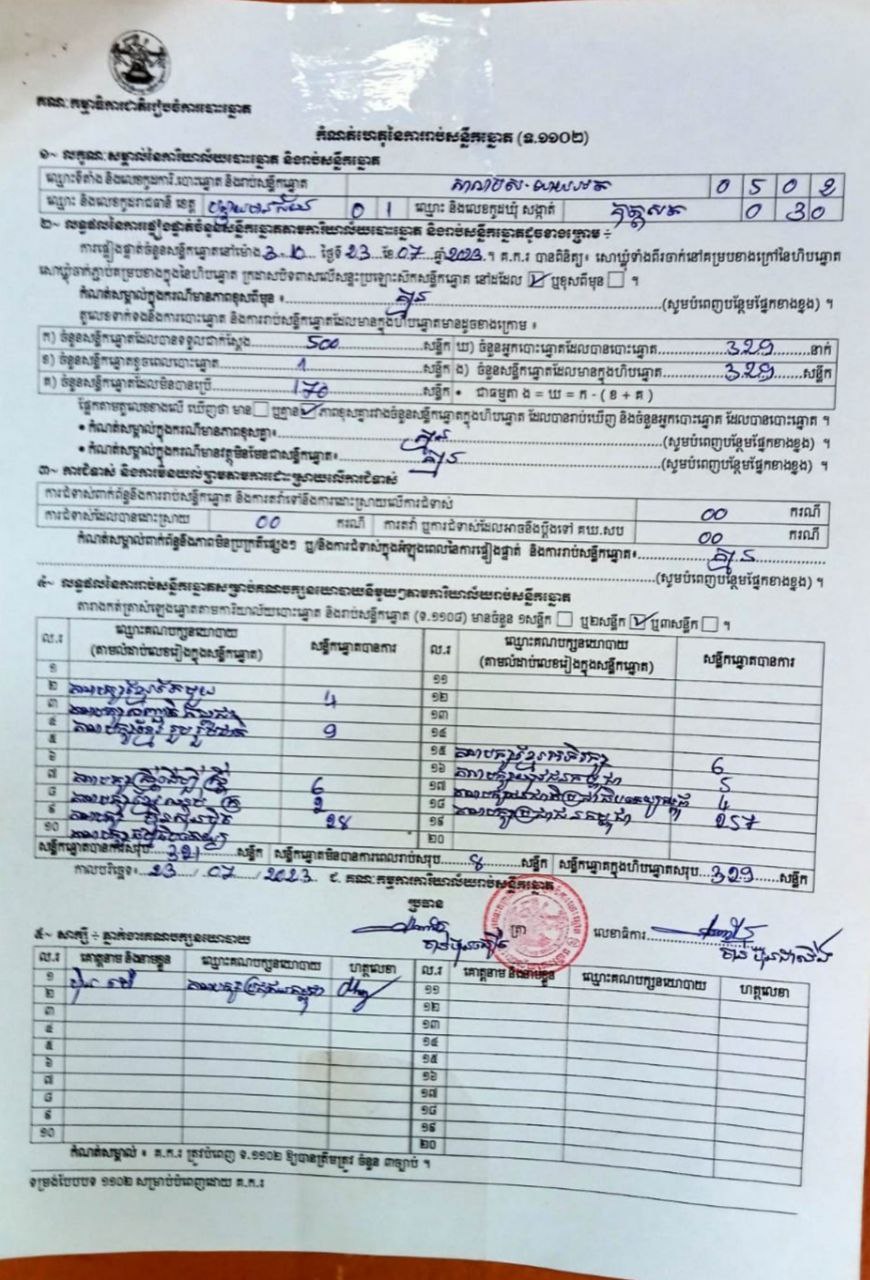 គណៈកម្មាធិការជាតិរៀបចំការបោះឆ្នោត
កំណត់ហេតុនៃការរាប់សន្លឹកឆ្នោត (ទ.១១០២)
១~ លក្ខណៈសម្គាល់នៃការិយាល័យបោះឆ្នោត និងរាប់សន្លឹកឆ្នោត
ឈ្មោះទីតាំង និងលេខកូដការិ.បោះឆ្នោត និងរាប់សន្លឹកឆ្នោត 0 5 0 2
ឈ្មោះ និងលេខកូដរាជធានី ខេត្ត បន្ទាយមានជ័យ 0 1 ឈ្មោះ និងលេខកូដឃុំ សង្កាត់ 0 3 0
២~ លទ្ធផលនៃការផ្ទៀងផ្ទាត់ចំនួនសន្លឹកឆ្នោតតាមការិយាល័យបោះឆ្នោត និងរាប់សន្លឹកឆ្នោតដូចខាងក្រោម ÷
ការផ្ទៀងផ្ទាត់ចំនួនសន្លឹកឆ្នោតនៅម៉ោង ថ្ងៃទី 23 ខែ 07 ឆ្នាំ 2023 ។ គ.ក.រ បានពិនិត្យ៖ សោឃ្លុំទាំងពីរចាក់នៅគម្របខាងក្រៅនៃហិបឆ្នោត
សោឃ្លុំចាក់ភ្ជាប់គម្របខាងក្នុងនៃហិបឆ្នោត ក្រដាសបិទពាសលើសន្ទះប្រឡោះស៊កសន្លឹកឆ្នោត នៅដដែល ☑ ឬខុសពីមុន ☐ ។
កំណត់សម្គាល់ក្នុងករណីមានភាពខុសពីមុន ៖ គ្មាន (សូមបំពេញបន្ថែមផ្នែកខាងខ្នង) ។
តួលេខទាក់ទងនឹងការបោះឆ្នោត និងការរាប់សន្លឹកឆ្នោតដែលមានក្នុងហិបឆ្នោតមានដូចខាងក្រោម ៖
ក) ចំនួនសន្លឹកឆ្នោតដែលបានទទួលជាក់ស្តែង 500 សន្លឹក ឃ) ចំនួនអ្នកបោះឆ្នោតដែលបានបោះឆ្នោត 329 នាក់
ខ) ចំនួនសន្លឹកឆ្នោតខូចពេលបោះឆ្នោត 1 សន្លឹក ង) ចំនួនសន្លឹកឆ្នោតដែលមានក្នុងហិបឆ្នោត 329 សន្លឹក
គ) ចំនួនសន្លឹកឆ្នោតដែលមិនបានប្រើ 170 សន្លឹក • ជាធម្មតា ង = ឃ = ក - ( ខ + គ )
ផ្នែកតាមតួលេខខាងលើ ឃើញថា មាន ☐ ឬគ្មាន ☑ ភាពខុសគ្នារវាងចំនួនសន្លឹកឆ្នោតក្នុងហិបឆ្នោត ដែលបានរាប់ឃើញ និងចំនួនអ្នកបោះឆ្នោត ដែលបានបោះឆ្នោត ។
• កំណត់សម្គាល់ក្នុងករណីមានភាពខុសគ្នា៖ គ្មាន (សូមបំពេញបន្ថែមផ្នែកខាងខ្នង) ។
• កំណត់សម្គាល់ក្នុងករណីមានវត្ថុមិនមែនជាសន្លឹកឆ្នោត៖ គ្មាន (សូមបំពេញបន្ថែមផ្នែកខាងខ្នង) ។
៣~ ការជំទាស់ និងការមិនយល់ព្រមតាមការដោះស្រាយលើការជំទាស់
ការជំទាស់ពាក់ព័ន្ធនឹងការរាប់សន្លឹកឆ្នោត និងការតវ៉ាទៅនឹងការដោះស្រាយលើការជំទាស់ 00 ករណី
ការជំទាស់ដែលបានដោះស្រាយ 00 ករណី ការតវ៉ា ឬការជំទាស់ដែលអាចនឹងប្តឹងទៅ គឃ.សប 00 ករណី
កំណត់សម្គាល់ពាក់ព័ន្ធនឹងភាពមិនប្រក្រតីផ្សេងៗ ឬ/និងការជំទាស់ក្នុងអំឡុងពេលនៃការផ្ទៀងផ្ទាត់ និងការរាប់សន្លឹកឆ្នោត៖ គ្មាន
(សូមបំពេញបន្ថែមផ្នែកខាងខ្នង) ។
៤~ លទ្ធផលនៃការរាប់សន្លឹកឆ្នោតសម្រាប់គណបក្សនយោបាយនីមួយៗតាមការិយាល័យរាប់សន្លឹកឆ្នោត
តារាងកត់ត្រាសំឡេងឆ្នោតតាមការិយាល័យបោះឆ្នោត និងរាប់សន្លឹកឆ្នោត (ទ.១១០៨) មានចំនួន ១សន្លឹក ☐ ឬ២សន្លឹក ☑ ឬ៣សន្លឹក ☐ ។
ល.រ ឈ្មោះគណបក្សនយោបាយ (តាមលំដាប់លេខរៀងក្នុងសន្លឹកឆ្នោត) សន្លឹកឆ្នោតបានការ ល.រ ឈ្មោះគណបក្សនយោបាយ (តាមលំដាប់លេខរៀងក្នុងសន្លឹកឆ្នោត) សន្លឹកឆ្នោតបានការ
១ ១១
២ 4 ១២
៣ ១៣
៤ 9 ១៤
៥ ១៥
៦ ១៦ 6
៧ 6 ១៧ 5
៨ 2 ១៨ 4
៩ 28 ១៩ គណបក្សប្រជាជនកម្ពុជា 257
១០ ២០
សន្លឹកឆ្នោតបានការសរុប 321 សន្លឹក សន្លឹកឆ្នោតមិនបានការពេលរាប់សរុប 8 សន្លឹក សន្លឹកឆ្នោតក្នុងហិបឆ្នោតសរុប 329 សន្លឹក
កាលបរិច្ឆេទ៖ 23 / 07 / 2023 ជ. គណៈកម្មការការិយាល័យរាប់សន្លឹកឆ្នោត
ប្រធាន
ត្រា លេខាធិការ
៥~ សាក្សី ÷ ភ្នាក់ងារគណបក្សនយោបាយ
ល.រ គោត្តនាម និងនាមខ្លួន ឈ្មោះគណបក្សនយោបាយ ហត្ថលេខា ល.រ គោត្តនាម និងនាមខ្លួន ឈ្មោះគណបក្សនយោបាយ ហត្ថលេខា
១ គណបក្សប្រជាជនកម្ពុជា ១១
២ ១២
៣ ១៣
៤ ១៤
៥ ១៥
៦ ១៦
៧ ១៧
៨ ១៨
៩ ១៩
១០ ២០
កំណត់សម្គាល់ ៖ គ.ក.រ ត្រូវបំពេញ ទ.១១០២ ឱ្យបានត្រឹមត្រូវ ចំនួន ៣ច្បាប់ ។
ទម្រង់បែបបទ ១១០២ សម្រាប់បំពេញដោយ គ.ក.រ